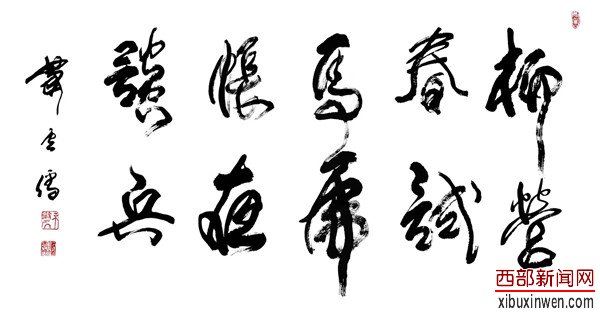 柳營
春試
馬虎
帳夜
談兵
蕭云儒
西部新闻网
xibuxinwen.com